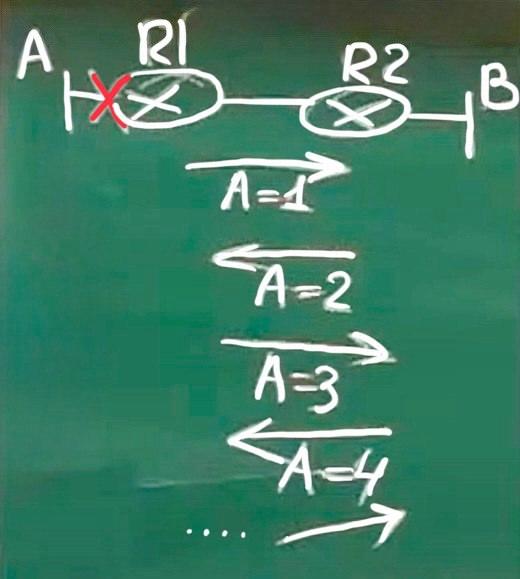 A R1 R2 B
A=1
A=2
A=3
A=4
....